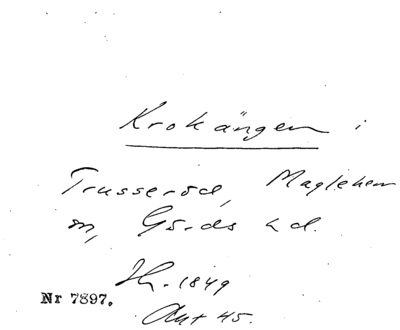 Krokängen i
Trusseröd, Maglehem
sn, Gärds hd.
Th. 1849
Akt 45.
Nr 7897.